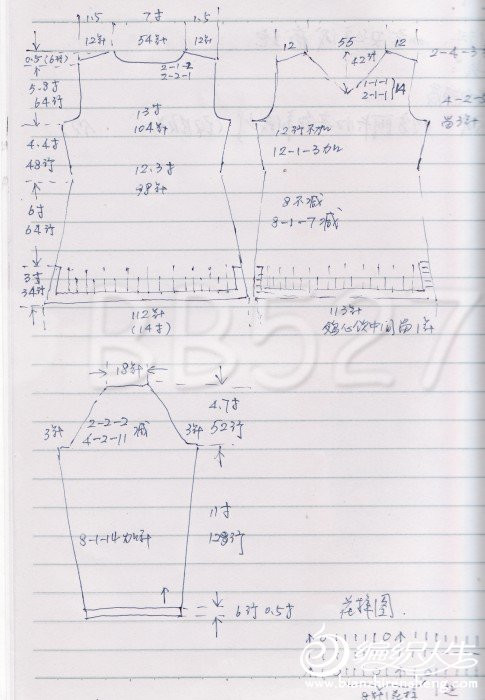 1.5 7寸 1.5
12针 54针 12针
0.5 (6行)
2-1-2
2-2-1
5.8寸
64行
13寸
104针
4.4寸
48行
12.3寸
98针
6寸
64行
3寸
34行
112针
(14寸)
12 55 12
42针
2-4-3
1-1-1
2-1-1
14
4-2-
留3针
12行不加
12-1-3加
8不减
8-1-7减
113针
鸡心领中间留1针
18针
4.7寸
52行
3针 2-2-2 3针
4-2-11 减
11寸
128行
8-1-14加针
6行 0.5寸
花样图
BB527
编织人生